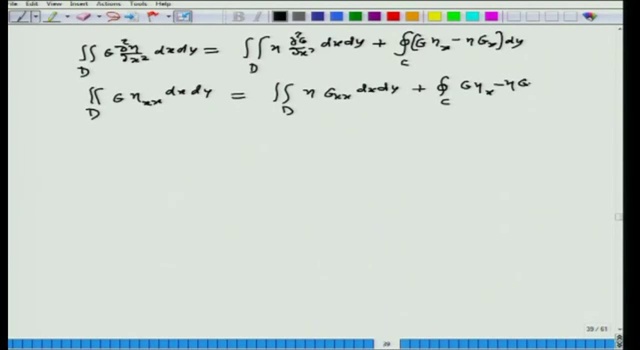 Edit View Insert Actions Tools Help
∬_D G ∂²η/∂x² dxdy = ∬_D η ∂²G/∂x² dxdy + ∮_C (G η_x − η G_x) dy
∬_D G η_xx dxdy = ∬_D η G_xx dxdy + ∮_C G η_x − η G
39